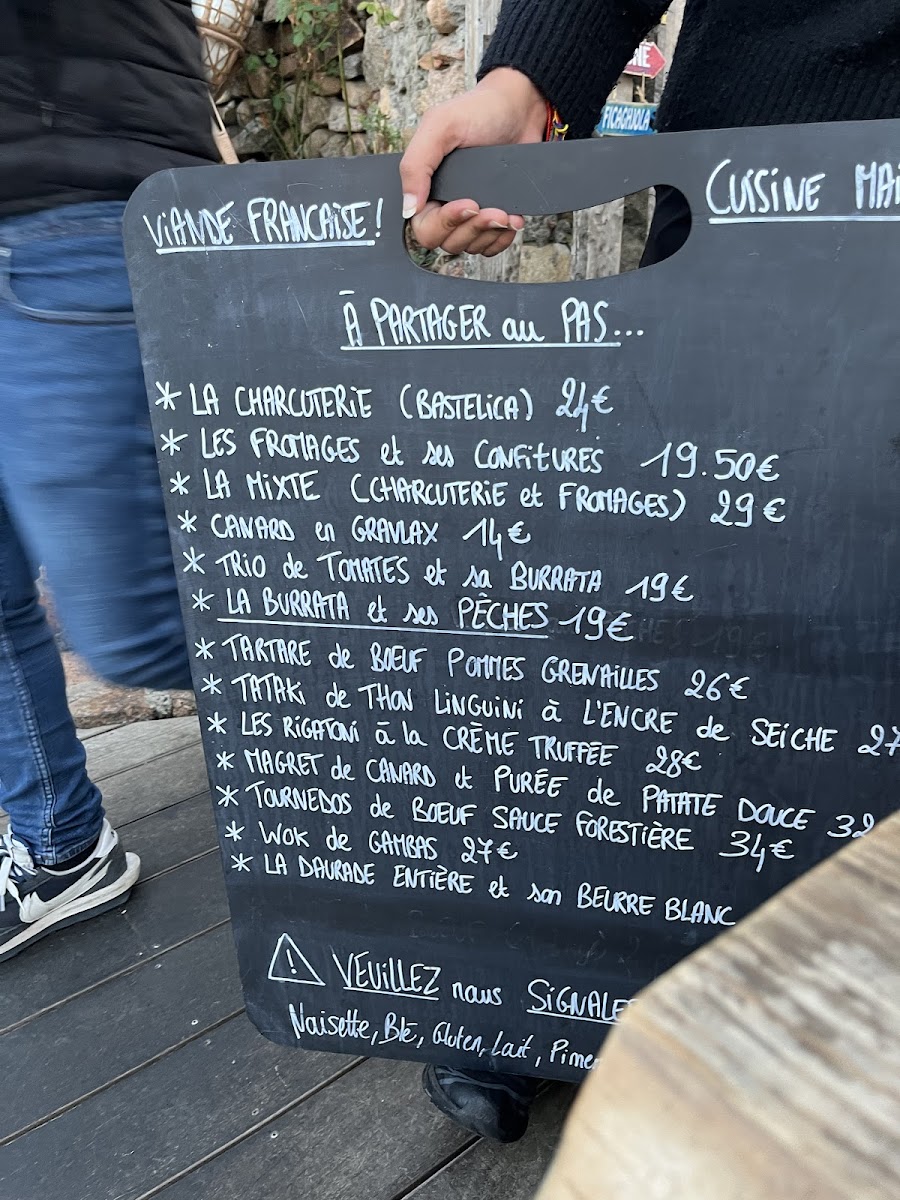 FICAGHJOLA
VIANDE FRANCAISE!
CUISINE MAI
À PARTAGER au PAS...
* LA CHARCUTERIE (BASTELICA) 24€
* LES FROMAGES et ses CONFITURES 19.50€
* LA MIXTE (CHARCUTERIE et FROMAGES) 29€
* CANARD en GRAVLAX 14€
* TRIO de TOMATES et sa BURRATA 19€
* LA BURRATA et ses PÊCHES 19€
* TARTARE de BOEUF POMMES GRENAILLES 26€
* TATAKI de THON LINGUINI à L'ENCRE de SEICHE 27
* LES RIGATONI à la CRÈME TRUFFEE 28€
* MAGRET de CANARD et PURÉE de PATATE DOUCE 32
* TOURNEDOS de BOEUF SAUCE FORESTIÈRE 34€
* WOK de GAMBAS 27€
* LA DAURADE ENTIÈRE et son BEURRE BLANC
⚠ VEUILLEZ nous SIGNALE
Noisette, Blé, Gluten, Lait, Pimen